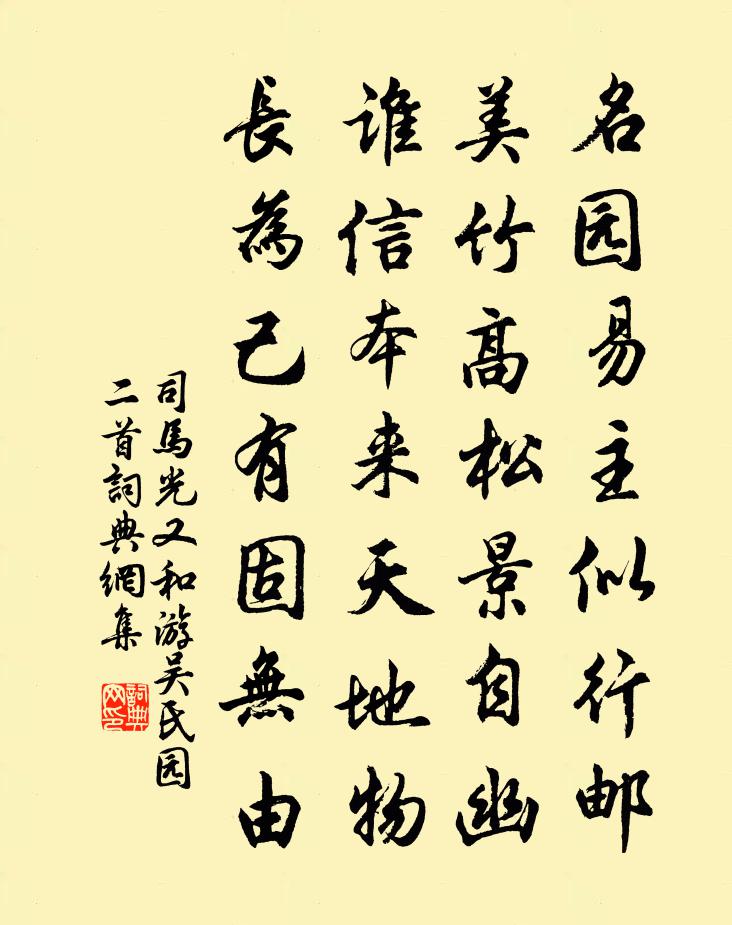 名园易主似行邮
美竹高松景自幽
谁信本来天地物
長為己有固無由
司馬光又和游吴氏园
二首詞典網集
詞典网印